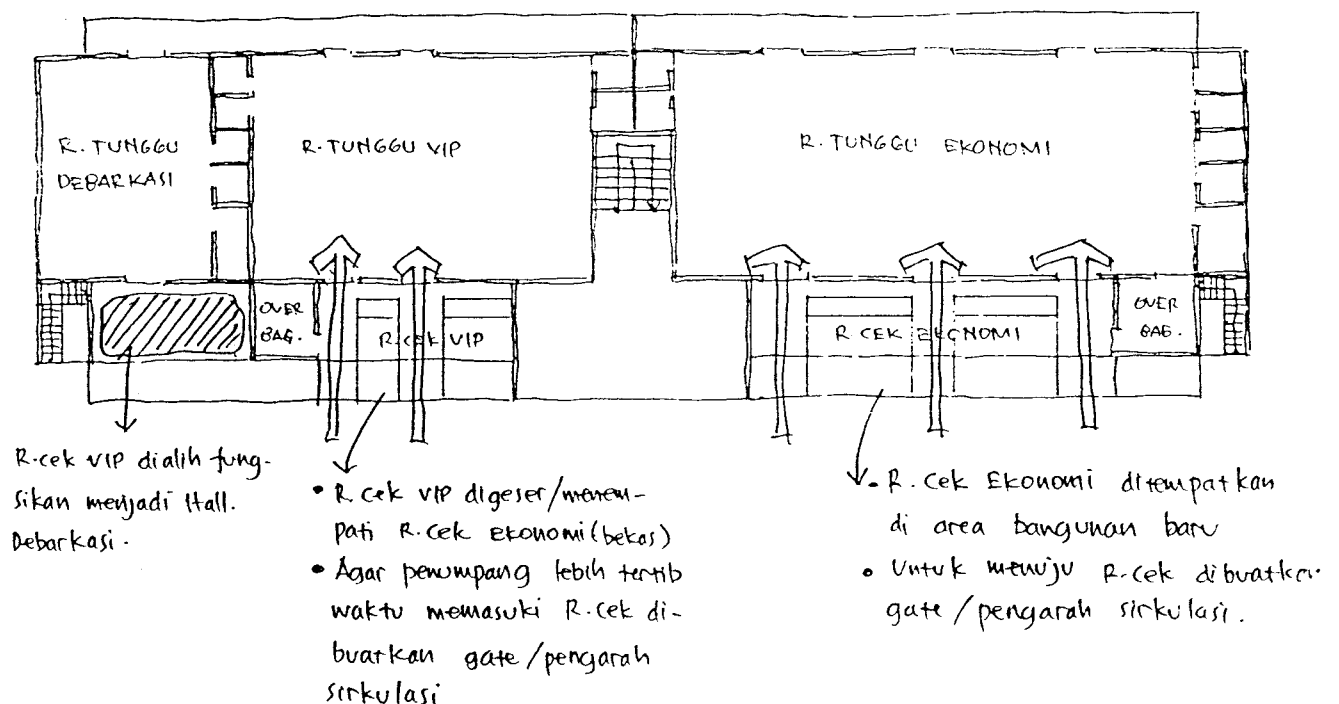 R. TUNGGU
DEBARKASI
R. TUNGGU VIP
R. TUNGGU EKONOMI
OVER
BAG.
R. CEK VIP
R. CEK EKONOMI
OVER
BAG.
R.cek VIP dialih fung-
sikan menjadi Hall.
Debarkasi.
• R.cek VIP digeser/menem-
pati R.cek Ekonomi (bekas)
• Agar penumpang lebih tertib
waktu memasuki R.cek di-
buatkan gate/pengarah
sirkulasi
• R. Cek Ekonomi ditempatkan
di area bangunan baru
• Untuk menuju R.cek dibuatkan
gate/pengarah sirkulasi.